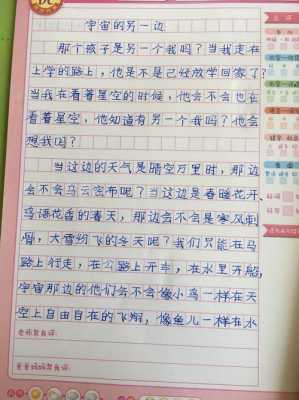 宇宙的另一边
那个孩子是另一个我吗？当我走在
上学的路上，他是不是已经放学回家了？
当我在看着星空的时候，他会不会也在
看着星空，他知道有另一个我吗？他会
想我吗？
当这边的天气是晴空万里时，那边
会不会乌云密布呢？当这边是春暖花开、
鸟语花香的春天，那边会不会是寒风刺
骨，大雪纷飞的冬天呢？我们只能在马
路上行走，在公路上开车，在水里开船，
宇宙那边的他们会不会像小鸟一样在天
空上自由自在的飞翔，像鱼儿一样在水
老师帮我评：
爸爸妈妈帮我评：